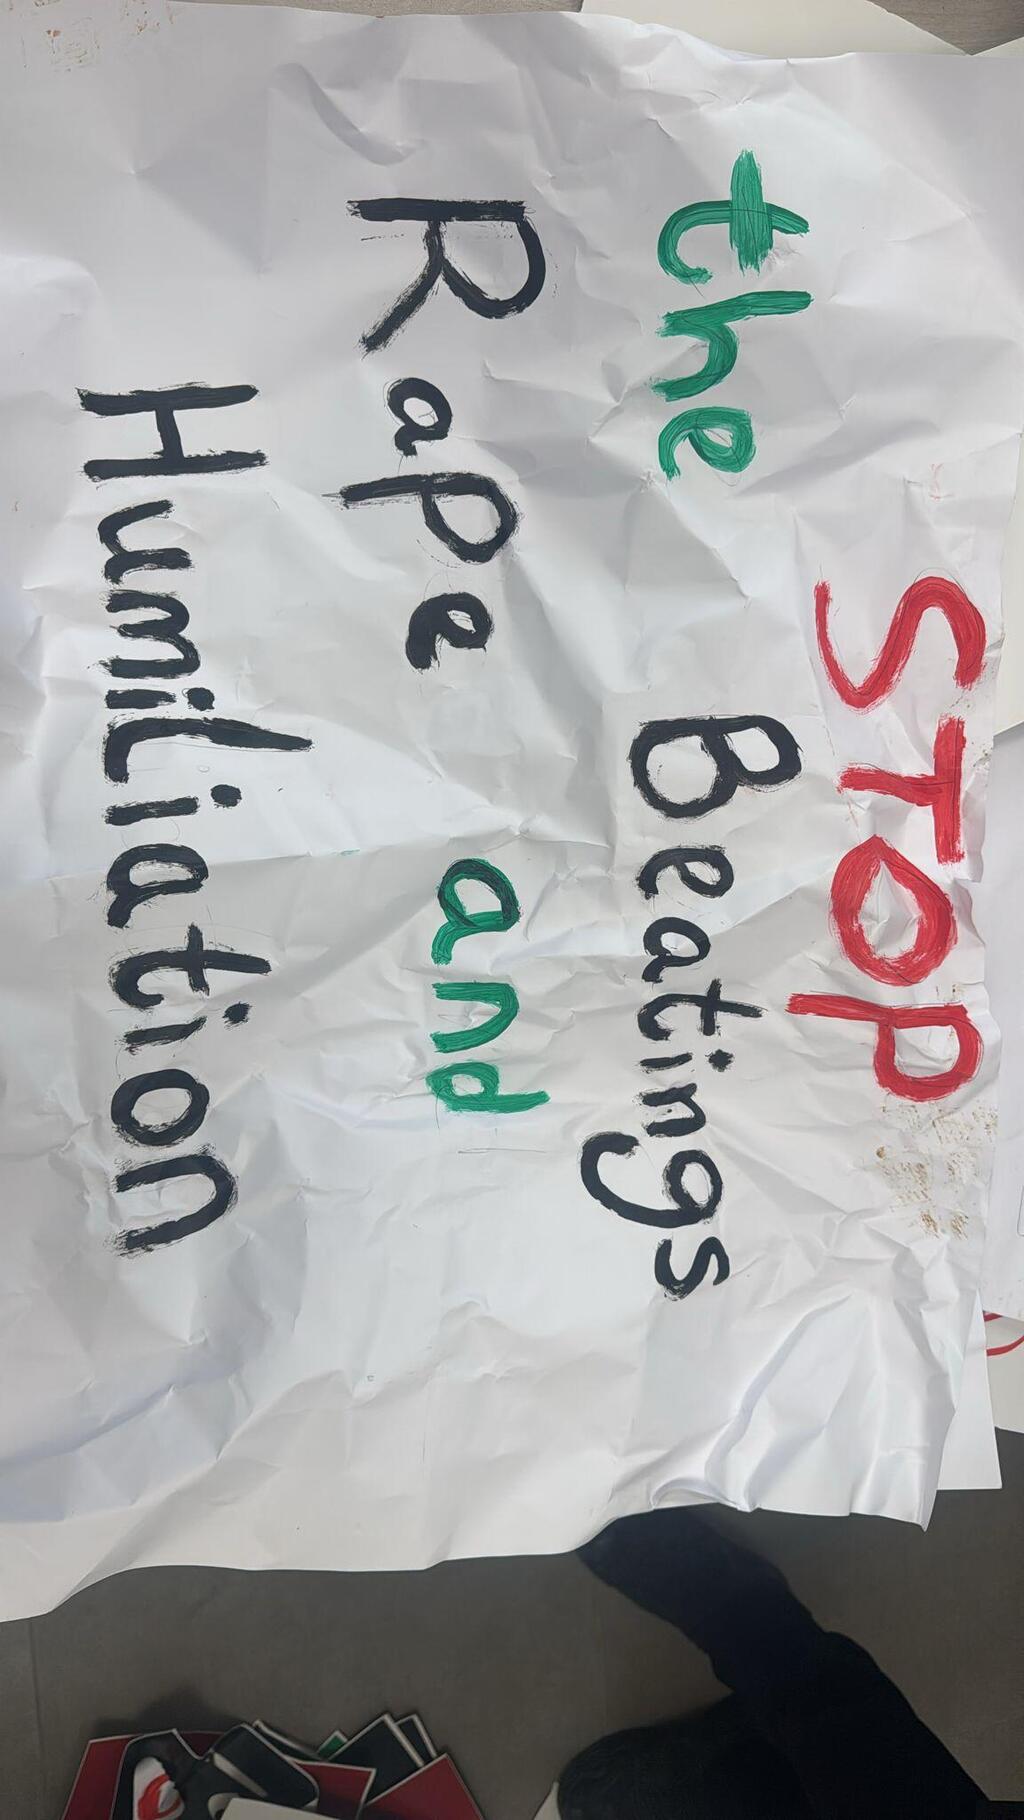 STOP
the Beatings
Rape and
Humiliation